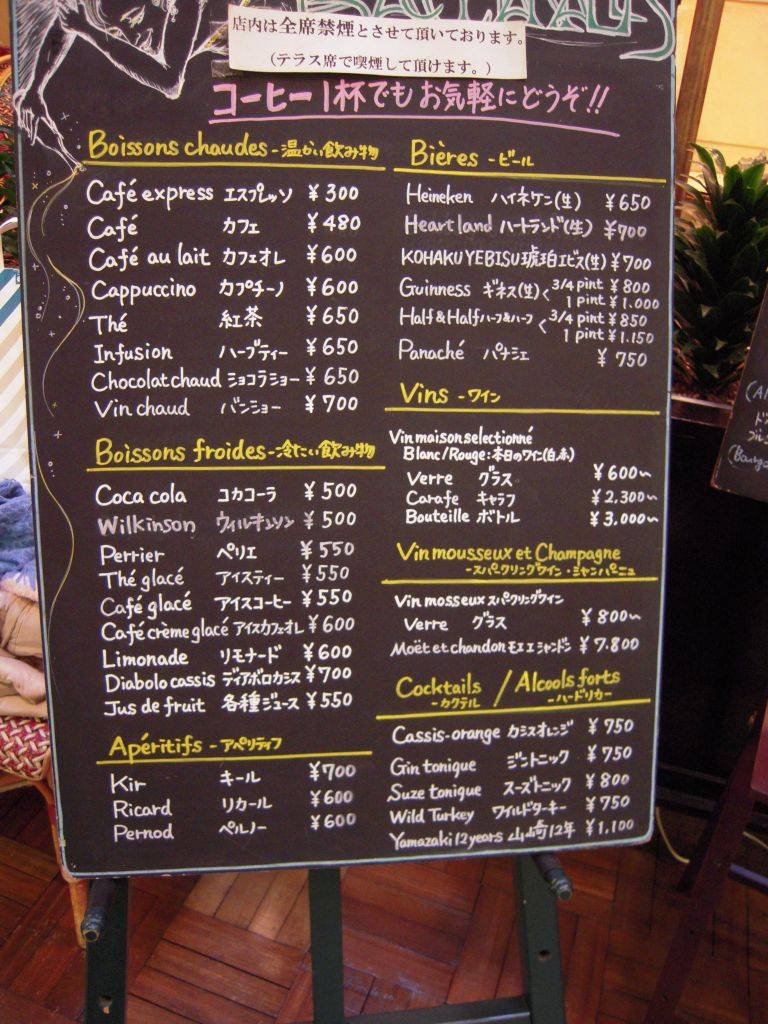 店内は全席禁煙とさせて頂いております。
(テラス席で喫煙して頂けます。)
コーヒー1杯でもお気軽にどうぞ!!
Boissons chaudes - 温かい飲み物
Café express エスプレッソ ¥300
Café カフェ ¥480
Café au lait カフェオレ ¥600
Cappuccino カプチーノ ¥600
Thé 紅茶 ¥650
Infusion ハーブティー ¥650
Chocolat chaud ショコラショー ¥650
Vin chaud バンショー ¥700
Boissons froides - 冷たい飲み物
Coca cola コカコーラ ¥500
Wilkinson ウィルキンソン ¥500
Perrier ペリエ ¥550
Thé glacé アイスティー ¥550
Café glacé アイスコーヒー ¥550
Café crème glacé アイスカフェオレ ¥600
Limonade リモナード ¥600
Diabolo cassis ディアボロカシス ¥700
Jus de fruit 各種ジュース ¥550
Apéritifs - アペリティフ
Kir キール ¥700
Ricard リカール ¥600
Pernod ペルノー ¥600
Bières - ビール
Heineken ハイネケン(生) ¥650
Heartland ハートランド(生) ¥700
KOHAKU YEBISU 琥珀エビス(生) ¥700
Guinness ギネス(生) < 3/4 pint ¥800
1 pint ¥1.000
Half & Half ハーフ&ハーフ < 3/4 pint ¥850
1 pint ¥1.150
Panaché パナシェ ¥750
Vins - ワイン
Vin maison selectionné
Blanc/Rouge:本日のワイン(白.赤)
Verre グラス ¥600~
Carafe キャラフ ¥2.300~
Bouteille ボトル ¥3.000~
Vin mousseux et Champagne
- スパークリングワイン・シャンパーニュ
Vin mosseux スパークリングワイン
Verre グラス ¥800~
Moët et chandon モエ エ シャンドン ¥7.800
Cocktails / Alcools forts
- カクテル - ハードリカー
Cassis-orange カシスオレンジ ¥750
Gin tonique ジントニック ¥750
Suze tonique スーズトニック ¥800
Wild Turkey ワイルドターキー ¥750
Yamazaki 12 years 山崎12年 ¥1,100